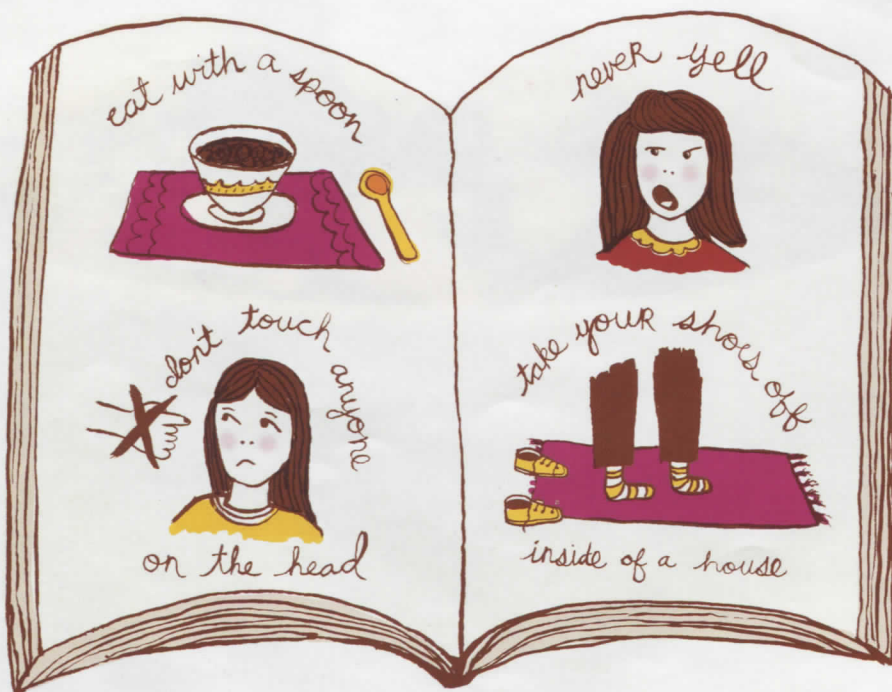 eat with a spoon
don't touch anyone
on the head
never yell
take your shoes off
inside of a house